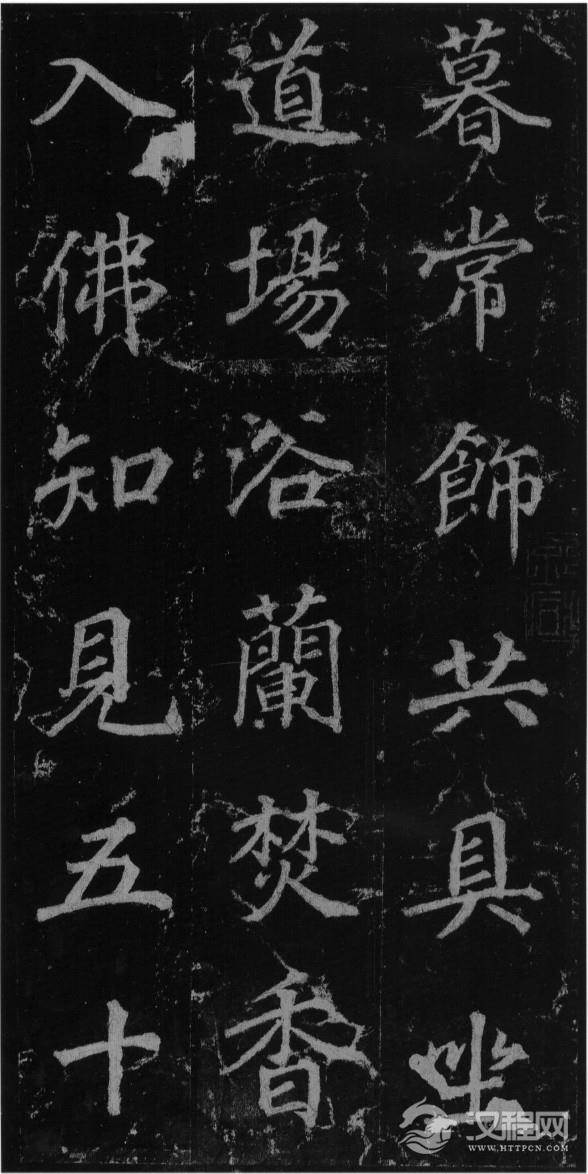 暮常飾共具坐
道場浴蘭焚香
入佛知見五十
汉程网
WWW.HTTPCN.COM